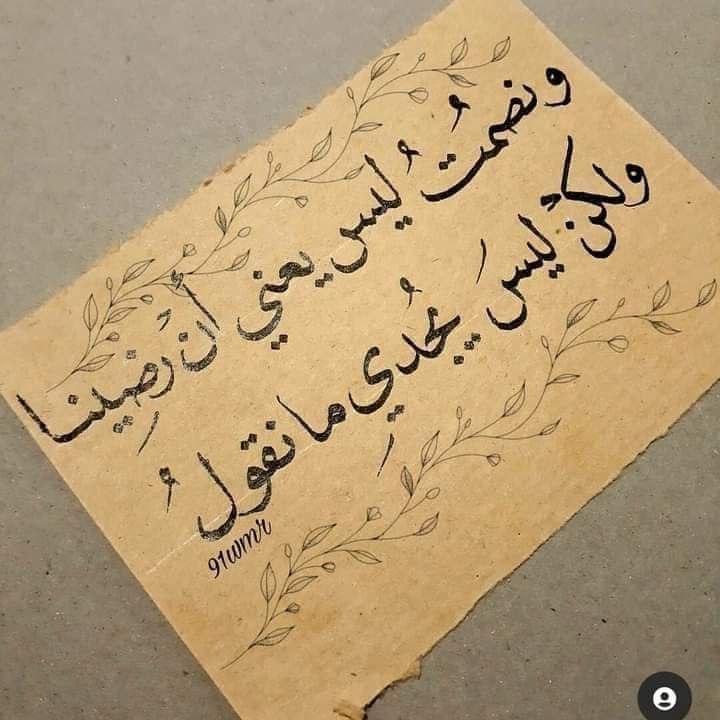 ونصمُتُ ليس يعني أن رَضِينا
ولكن ليسَ يُجدي ما نقولُ
91wmr